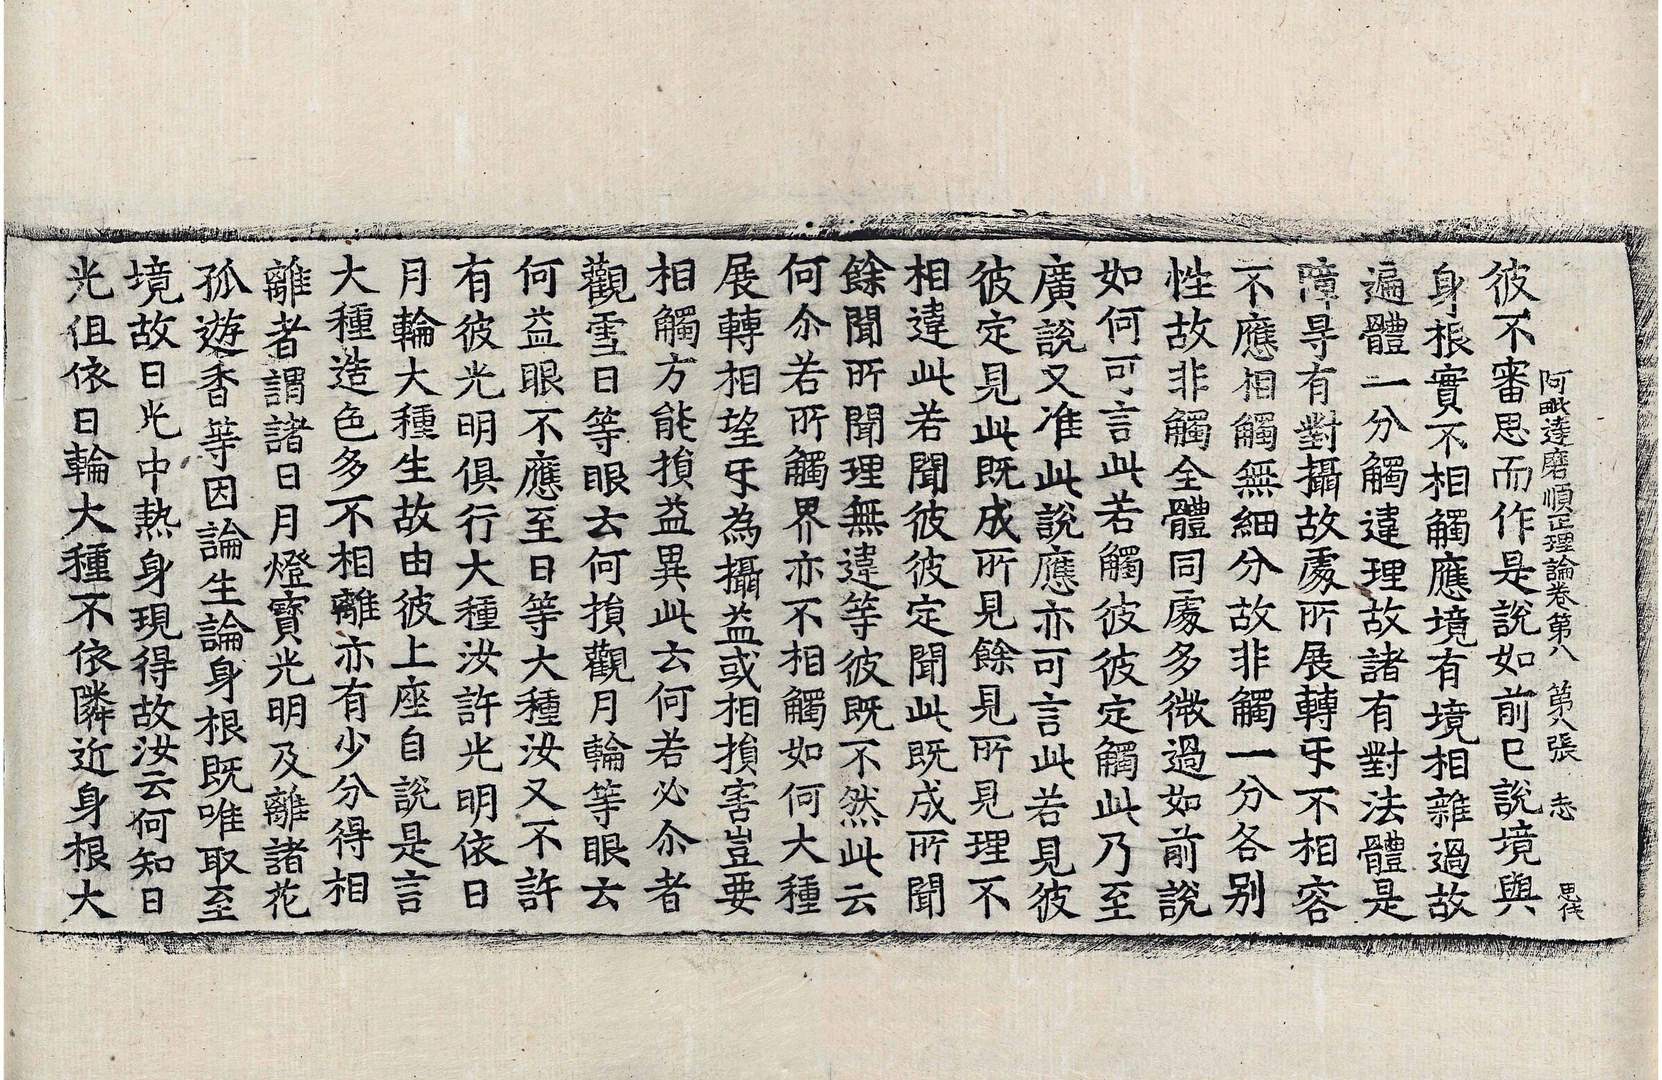 阿毗達磨順正理論卷第八　第八張　志　思俊
彼不審思而作是說如前已說境與
身根實不相觸應境有境相雜過故
遍體一分觸違理故諸有對法體是
障㝵有對攝故處所展轉㸦不相容
不應相觸無細分故非觸一分各別
性故非觸全體同處多微過如前說
如何可言此若觸彼彼定觸此乃至
廣說又准此說應亦可言此若見彼
彼定見此既成所見餘見所見理不
相違此若聞彼彼定聞此既成所聞
餘聞所聞理無違等彼既不然此云
何尒若所觸界亦不相觸如何大種
展轉相望㸦為攝益或相損害豈要
相觸方能損益異此云何若必尒者
觀雪日等眼云何損觀月輪等眼云
何益眼不應至日等大種汝又不許
有彼光明俱行大種汝許光明依日
月輪大種生故由彼上座自說是言
大種造色多不相離亦有少分得相
離者謂諸日月燈寶光明及離諸花
孤遊香等因論生論身根既唯取至
境故日光中熱身現得故汝云何知日
光但依日輪大種不依隣近身根大